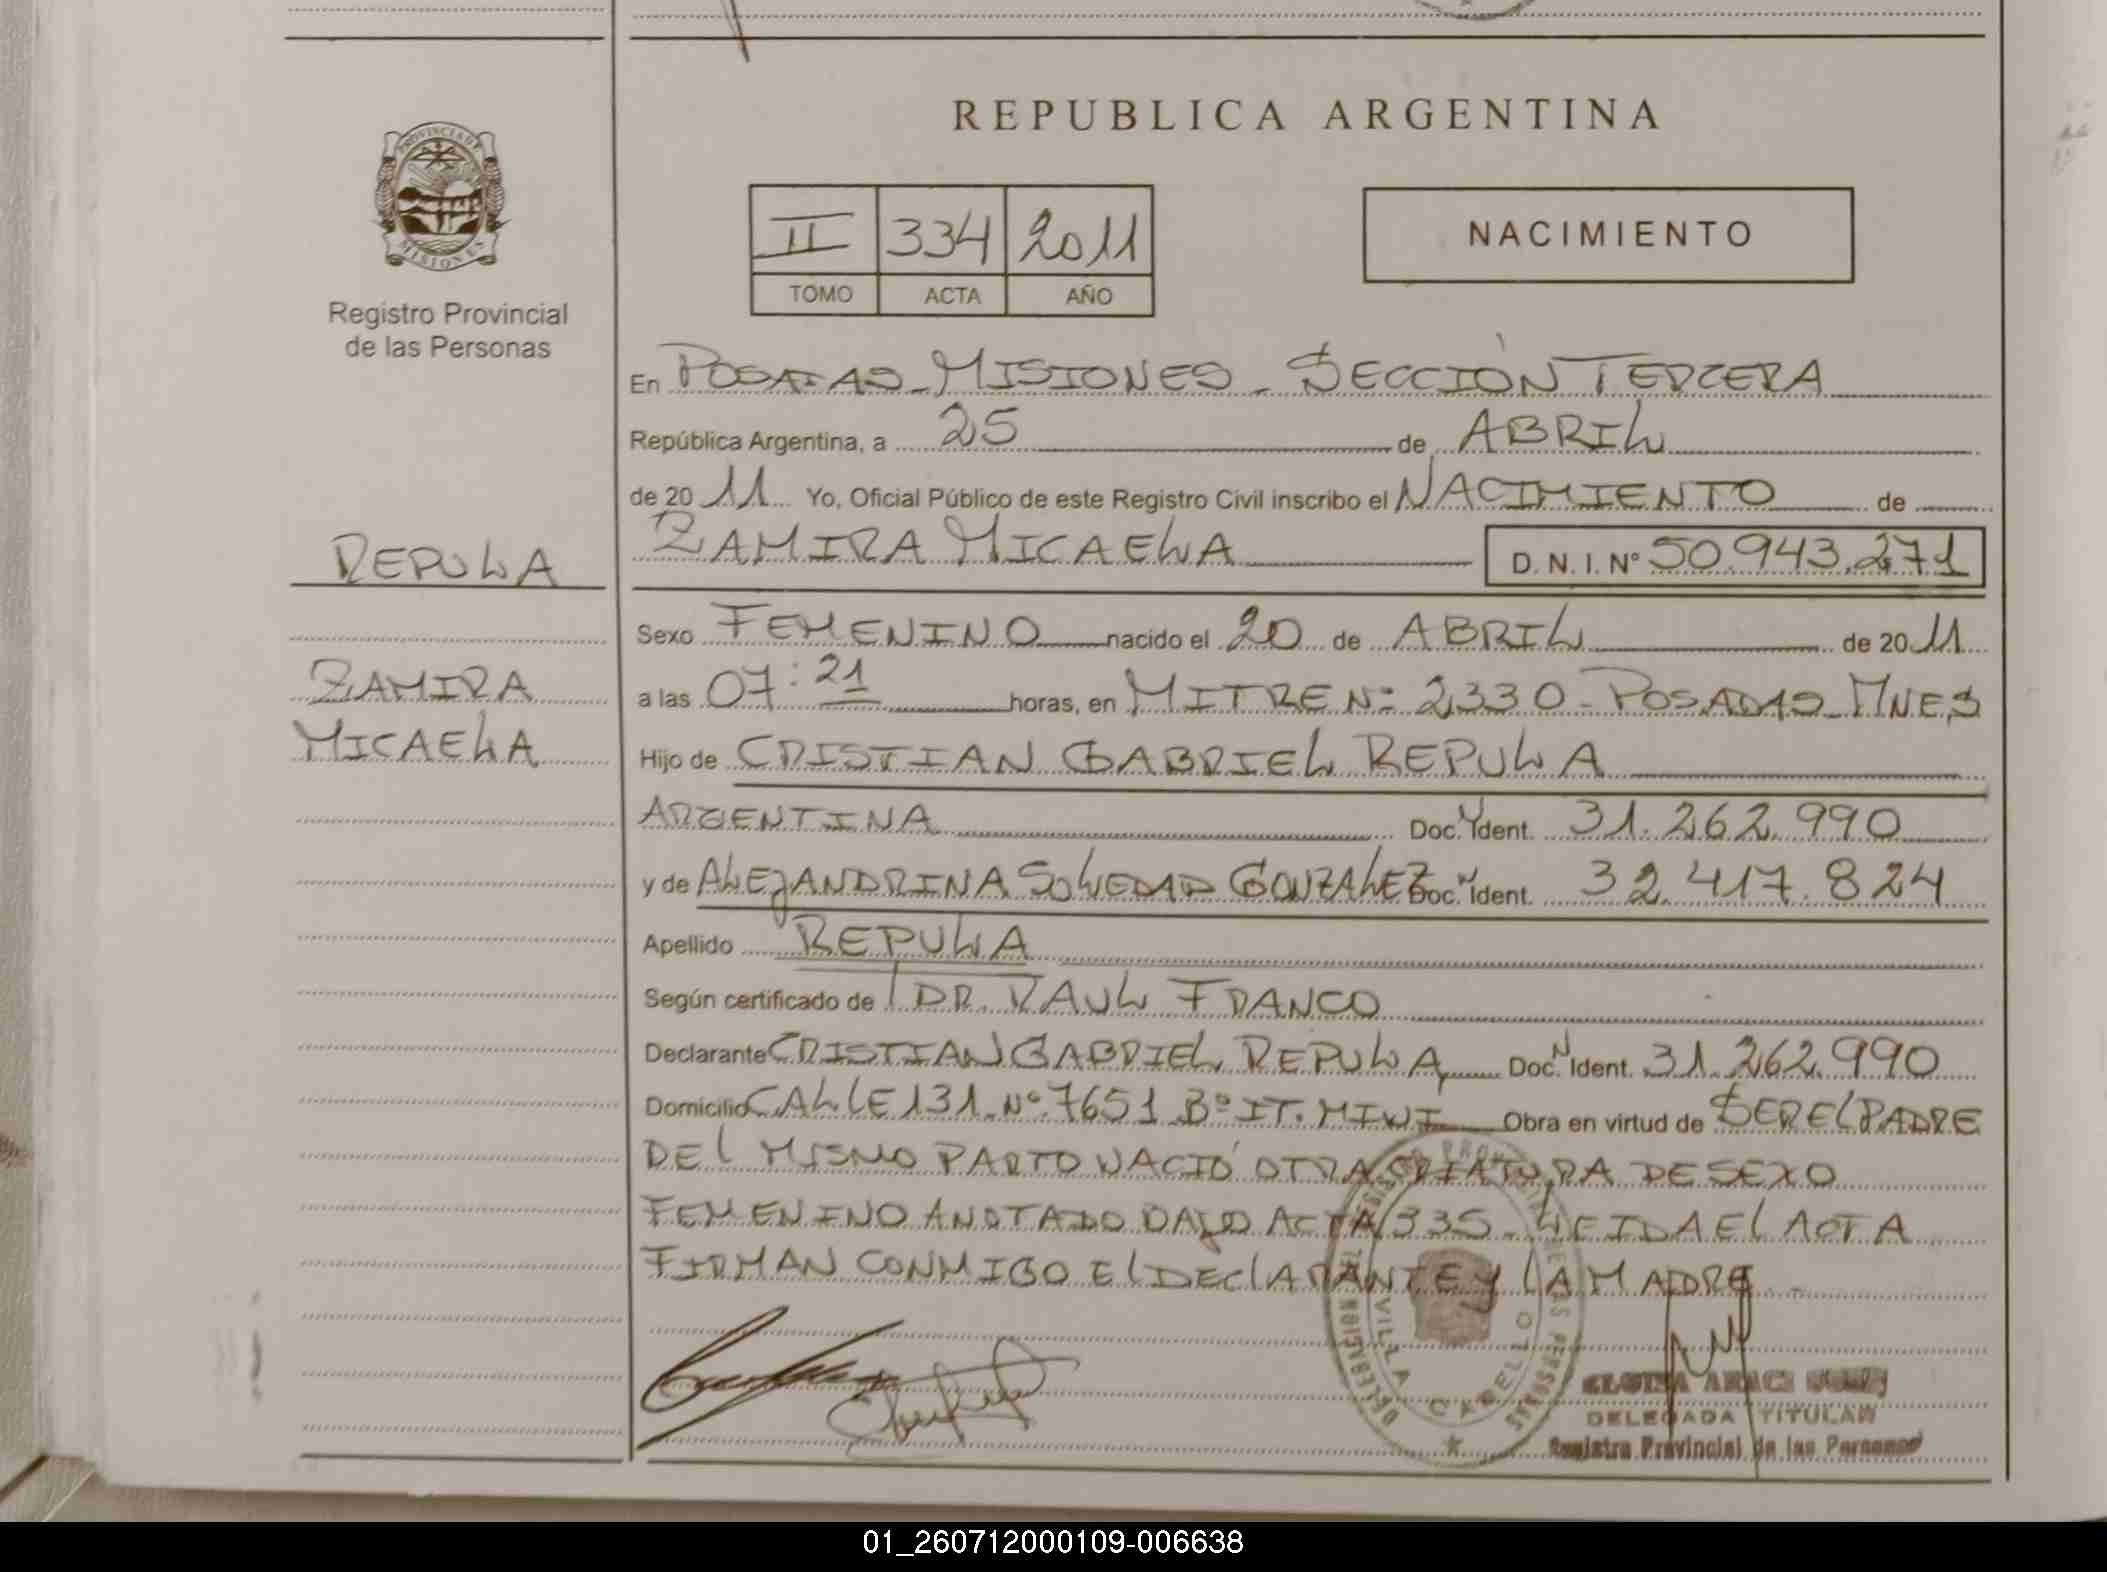 REPUBLICA ARGENTINA
PROVINCIA DE MISIONES
Registro Provincial
de las Personas
II 334 2011
TOMO ACTA AÑO
NACIMIENTO
En POSADAS - MISIONES - SECCIÓN TERCERA
República Argentina, a 25 de ABRIL
de 20 11 Yo, Oficial Público de este Registro Civil inscribo el NACIMIENTO de
REPULA
ZAMIRA MICAELA D. N. I. Nº 50.943.271
Sexo FEMENINO nacido el 20 de ABRIL de 20 11
ZAMIRA
MICAELA
a las 07:21 horas, en MITRE Nº 2330 - POSADAS - MNES
Hijo de CRISTIAN GABRIEL REPULA
ARGENTINA Doc. Ident. 31.262.990
y de ALEJANDRINA SOLEDAD GONZALEZ Doc. Ident. 32.417.824
Apellido REPULA
Según certificado de DR. RAUL FRANCO
Declarante CRISTIAN GABRIEL REPULA Doc. Ident. 31.262.990
Domicilio CALLE 131 Nº 7651 Bº IT. MINI Obra en virtud de SER EL PADRE
DEL MISMO PARTO NACIÓ OTRA CRIATURA DE SEXO
FEMENINO ANOTADO BAJO ACTA 335 - LEIDA EL ACTA
FIRMAN CONMIGO EL DECLARANTE Y LA MADRE
DELEGACION
VILLA CABELLO
DELEGADA TITULAR
Registro Provincial de las Personas
01_260712000109-006638